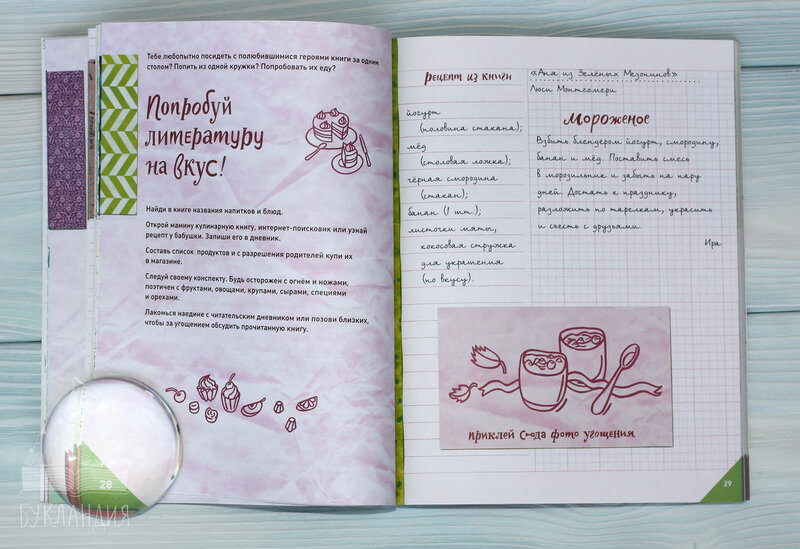 Тебе любопытно посидеть с полюбившимися героями книги за одним
столом? Попить из одной кружки? Попробовать их еду?
Попробуй
литературу
на вкус!
Найди в книге названия напитков и блюд.
Открой мамину кулинарную книгу, интернет-поисковик или узнай
рецепт у бабушки. Запиши его в дневник.
Составь список продуктов и с разрешения родителей купи их
в магазине.
Следуй своему конспекту. Будь осторожен с огнём и ножами,
поэтичен с фруктами, овощами, крупами, сырами, специями
и орехами.
Лакомься наедине с читательским дневником или позови близких,
чтобы за угощением обсудить прочитанную книгу.
28
БУКЛАНДИЯ
Рецепт из книги
йогурт
(половина стакана);
мёд
(столовая ложка);
чёрная смородина
(стакан);
банан (1 шт.);
листочки мяты,
кокосовая стружка
для украшения
(по вкусу).
«Аня из Зелёных Мезонинов»
Люси Монтгомери
Мороженое
Взбить блендером йогурт, смородину,
банан и мёд. Поставить смесь
в морозильник и забыть на пару
дней. Достать к празднику,
разложить по тарелкам, украсить
и съесть с друзьями.
Ира
приклей сюда фото угощения
29